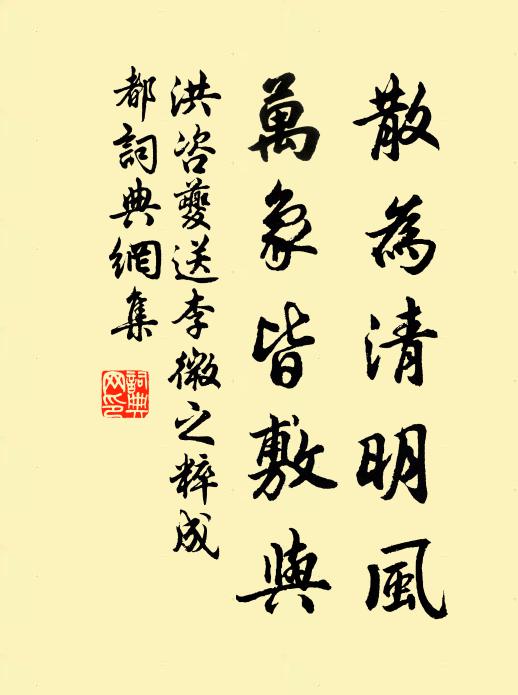 散為清明風
萬象皆敷與
洪咨夔送李微之粹成
都詞典網集
詞典
网印